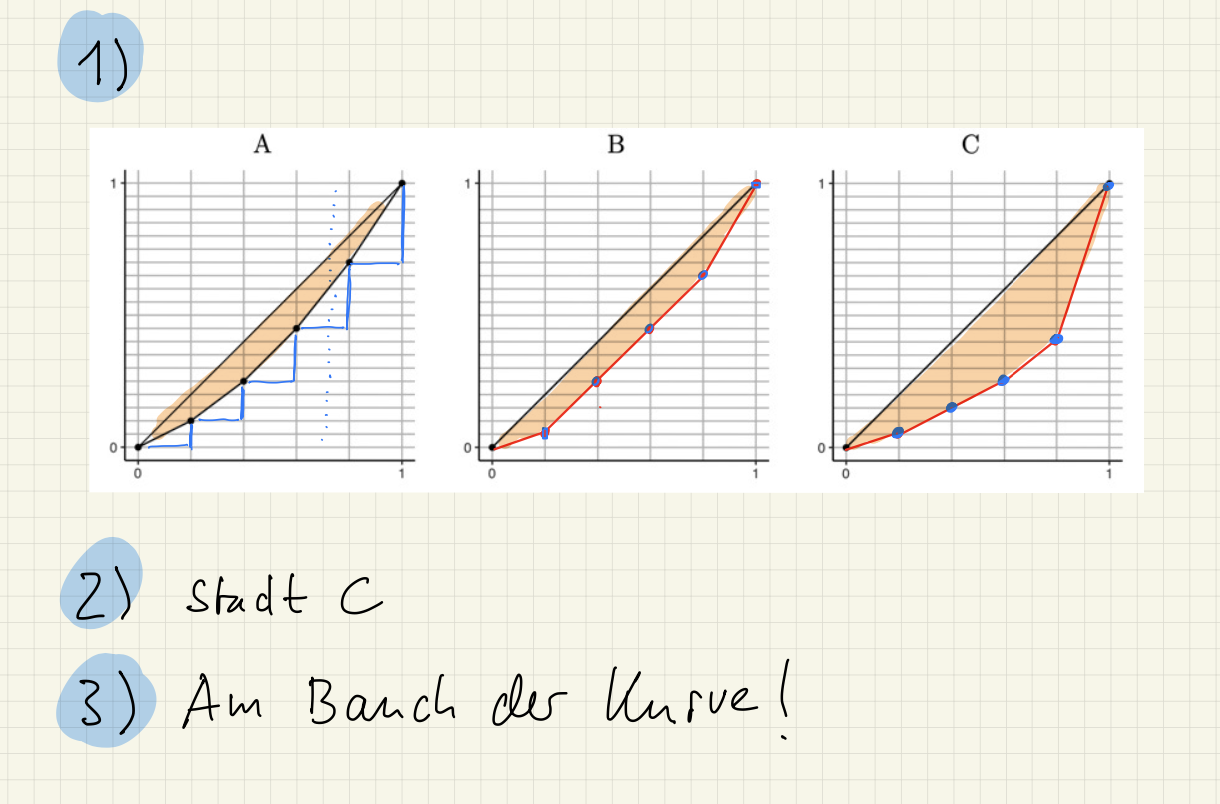 1)
A B C
1 1 1
0 0 0
0 1 0 1 0 1
2) Stadt C
3) Am Bauch der Kurve!